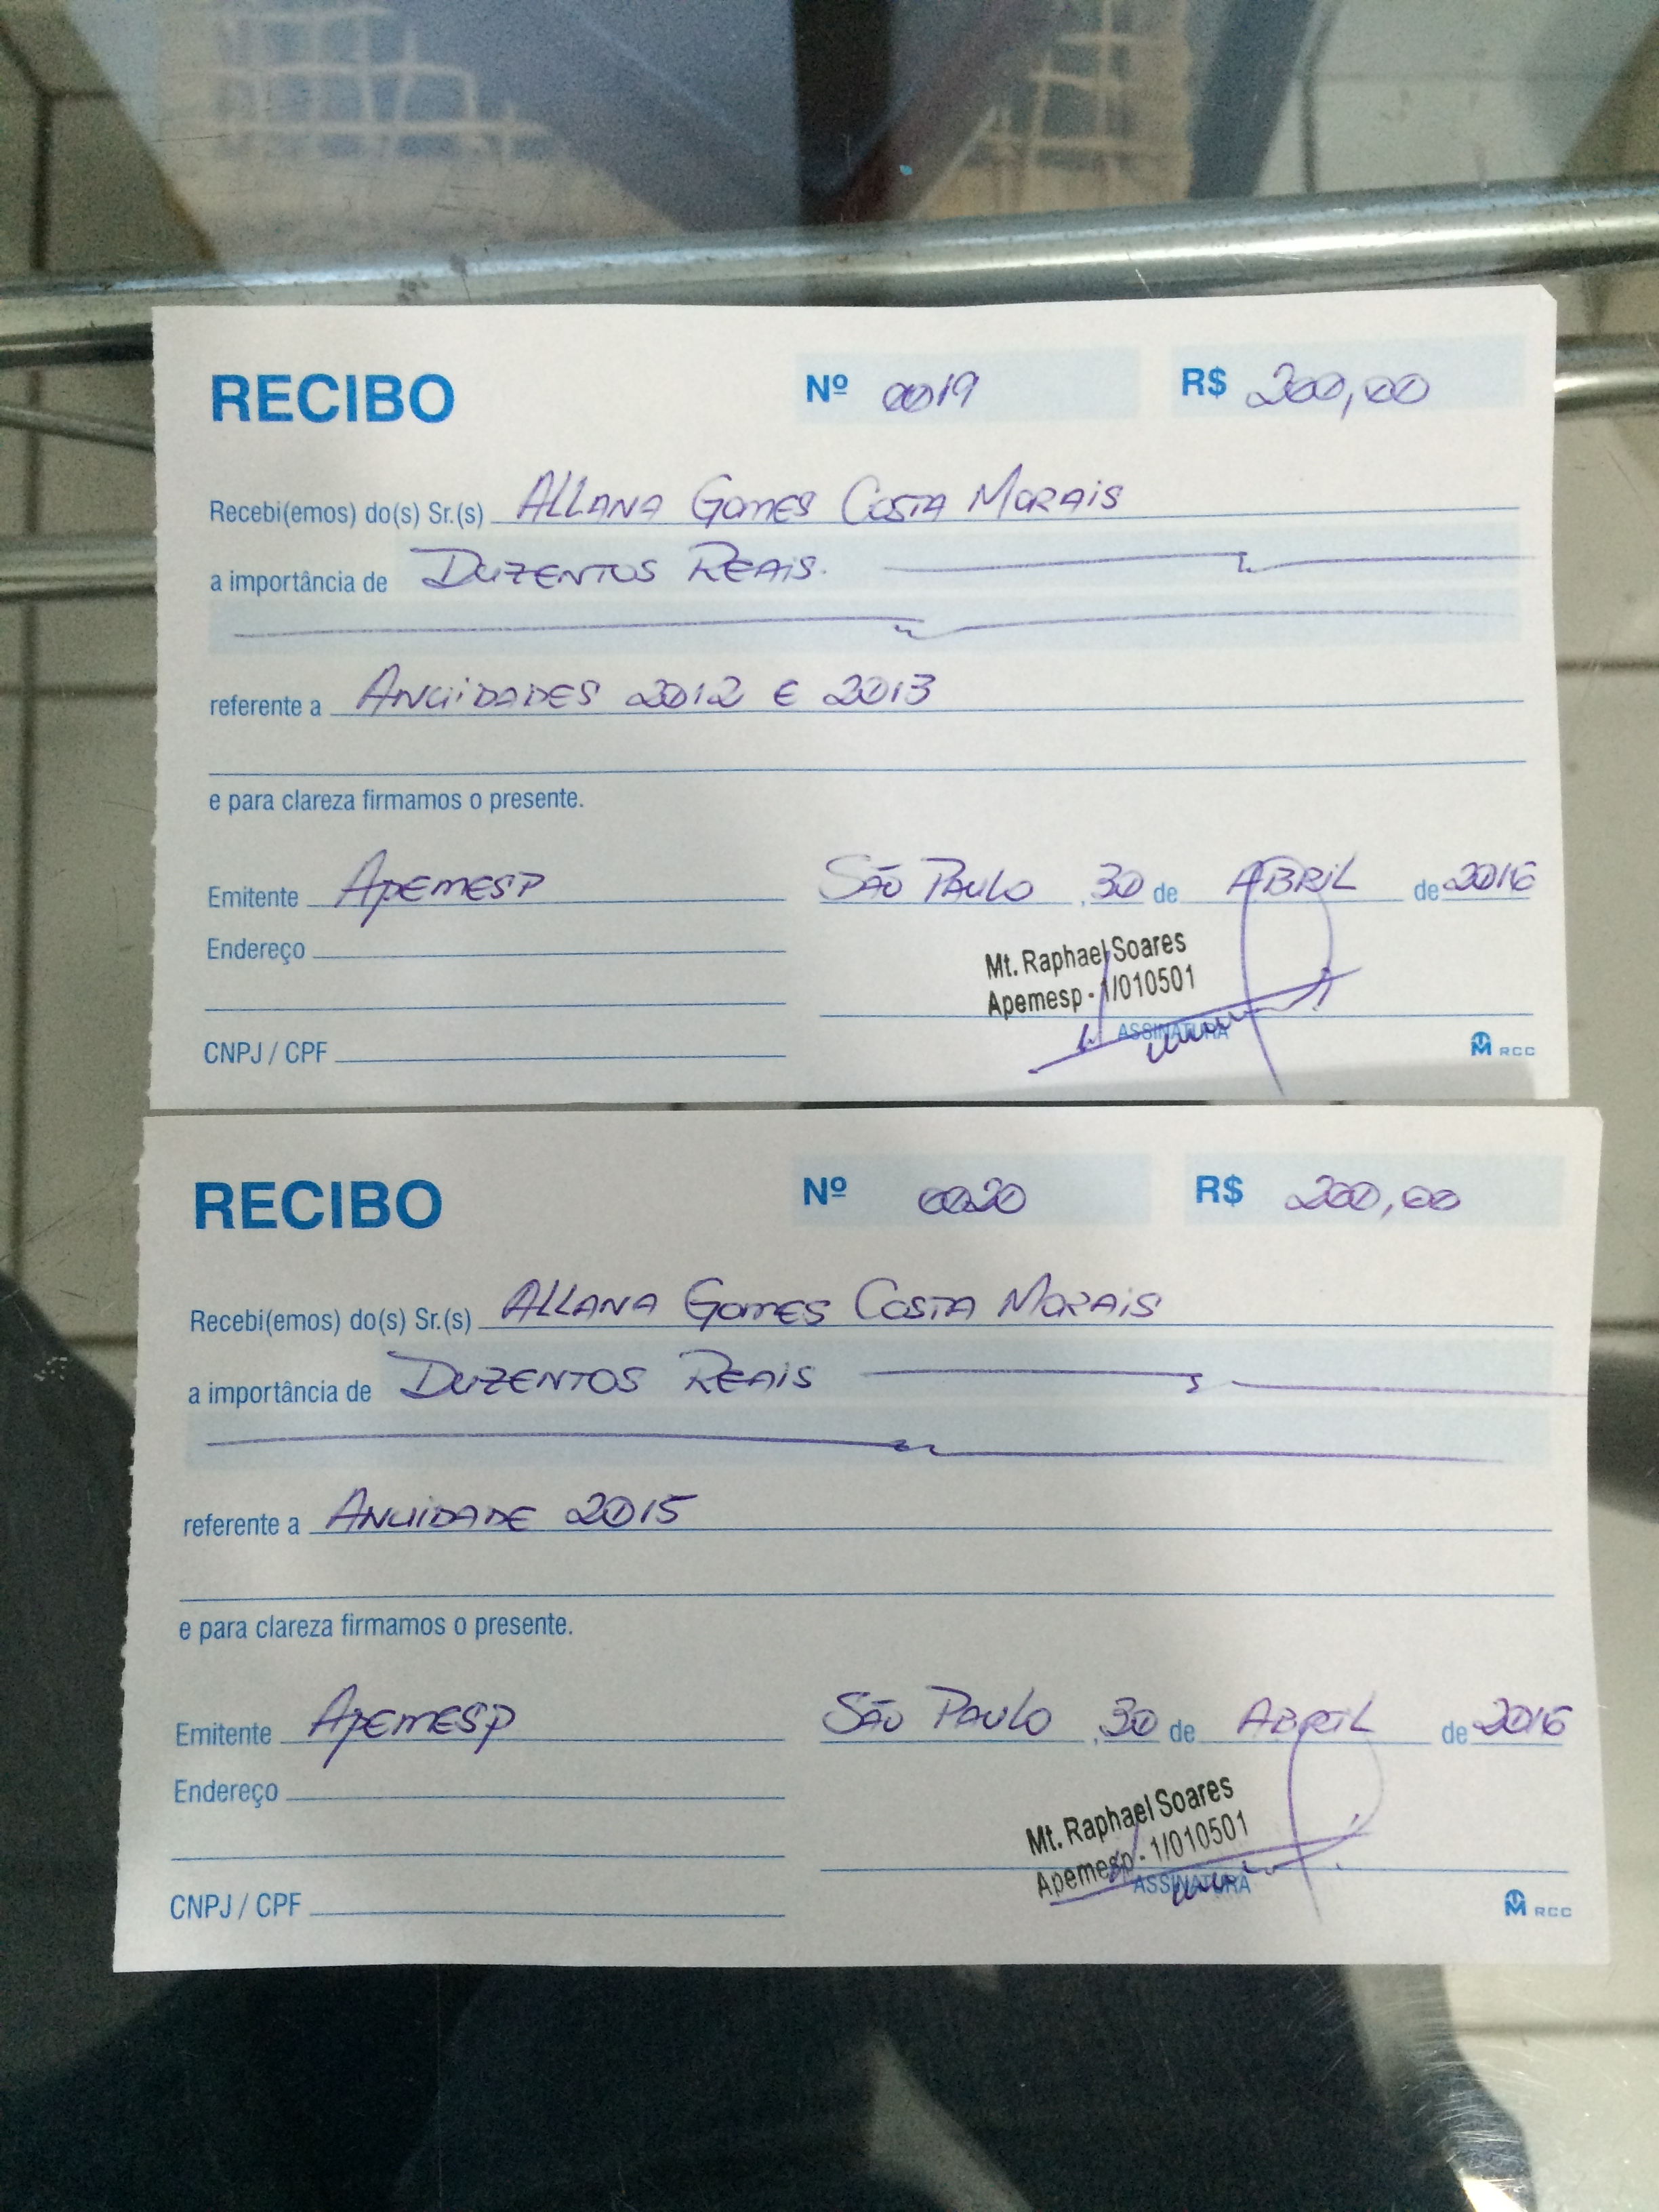 RECIBO Nº 0019 R$ 200,00
Recebi(emos) do(s) Sr.(s) ALLANA GOMES COSTA MORAIS
a importância de DUZENTOS REAIS.
referente a ANUIDADES 2012 E 2013
e para clareza firmamos o presente.
Emitente APEMESP SÃO PAULO , 30 de ABRIL de 2016
Endereço
Mt. Raphael Soares
Apemesp - 1/010501
ASSINATURA
CNPJ / CPF
M RCC
RECIBO Nº 0020 R$ 200,00
Recebi(emos) do(s) Sr.(s) ALLANA GOMES COSTA MORAIS
a importância de DUZENTOS REAIS
referente a ANUIDADE 2015
e para clareza firmamos o presente.
Emitente APEMESP SÃO PAULO , 30 de ABRIL de 2016
Endereço
Mt. Raphael Soares
Apemesp - 1/010501
ASSINATURA
CNPJ / CPF
M RCC